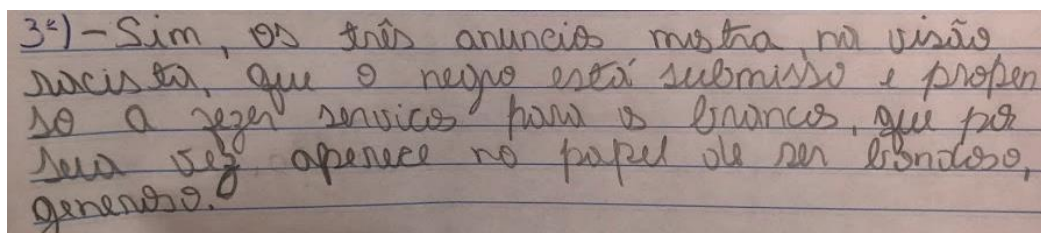 3ª) - Sim, os três anuncios mostra, na visão
racista, que o negro está submisso e propen
so a fezer serviços para os brancos, que por
sua vez aparece no papel de ser bondoso,
generoso.